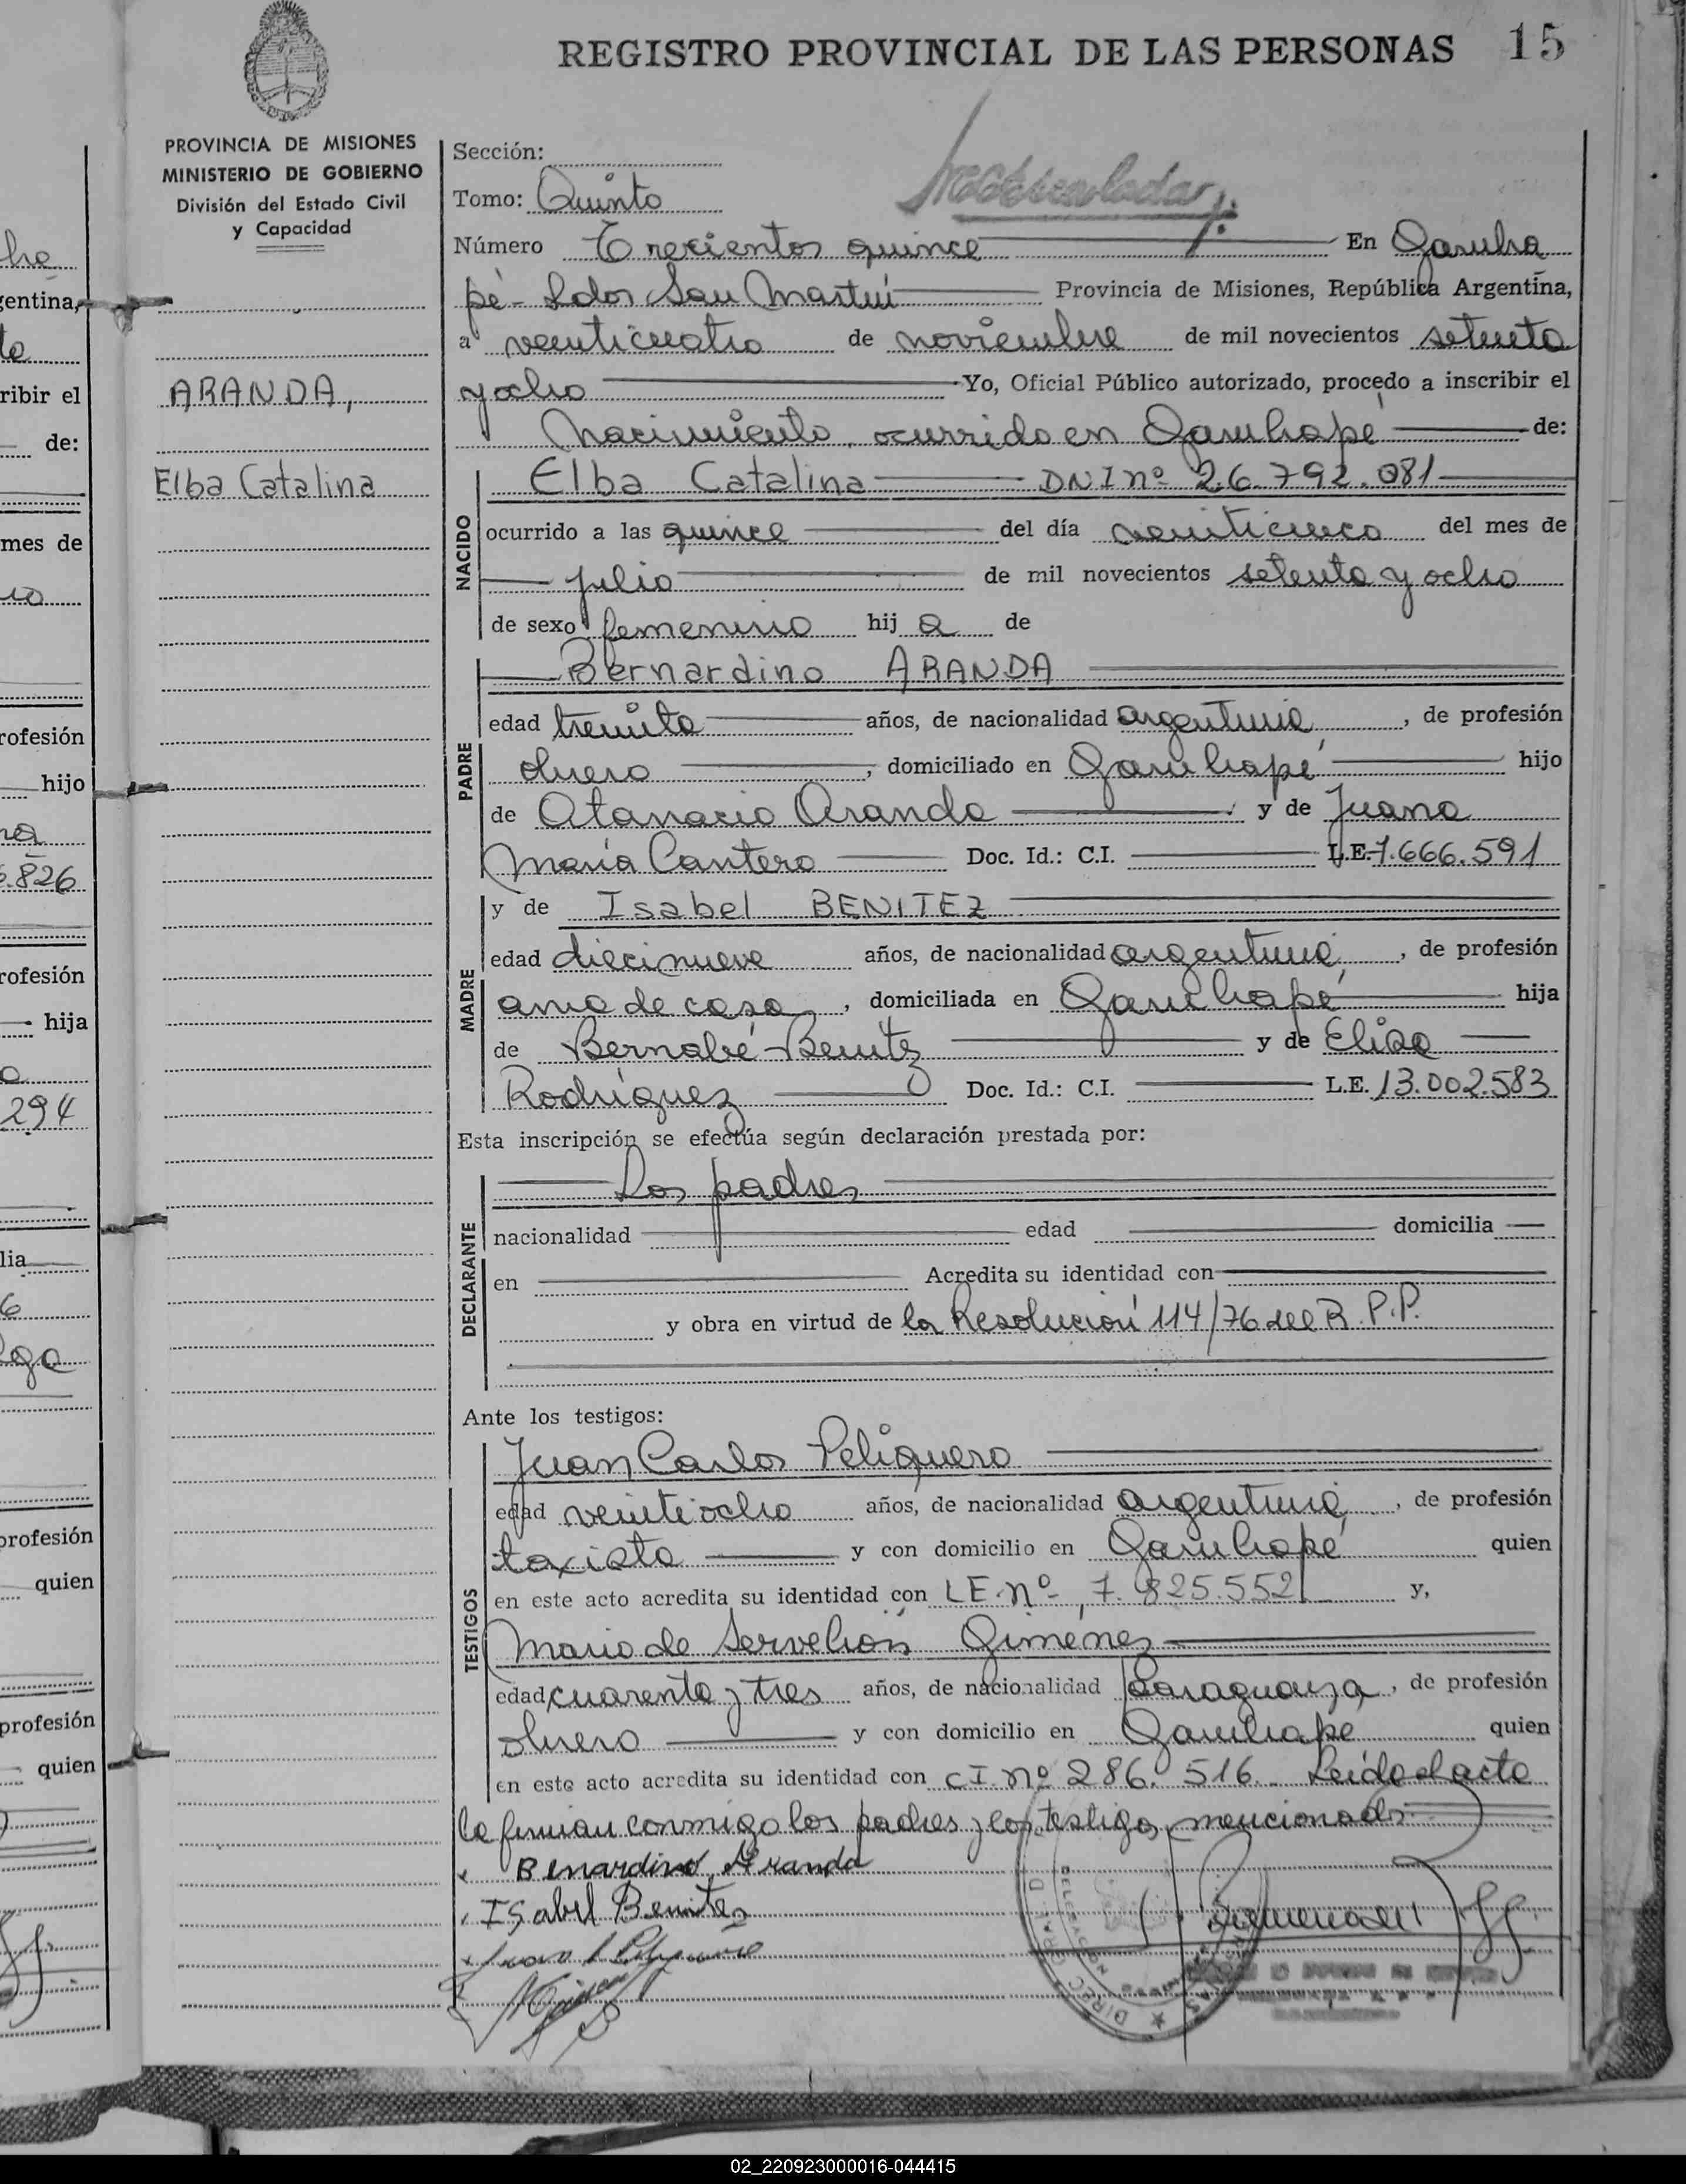 REGISTRO PROVINCIAL DE LAS PERSONAS 15
PROVINCIA DE MISIONES
MINISTERIO DE GOBIERNO
División del Estado Civil
y Capacidad
ARANDA,
Elba Catalina
Sección:
Tomo: Quinto
Número Trecientos quince En Garuha
pé - Ldor San Martín Provincia de Misiones, República Argentina,
a veinticuatro de noviembre de mil novecientos setenta
y ocho Yo, Oficial Público autorizado, procedo a inscribir el
Nacimiento, ocurrido en Garuhapé de:
NACIDO
Elba Catalina DNI nº 26.792.081
ocurrido a las quince del día veinticinco del mes de
julio de mil novecientos setenta y ocho
de sexo femenino hij a de
PADRE
Bernardino ARANDA
edad treinta años, de nacionalidad argentina, de profesión
obrero, domiciliado en Garuhapé hijo
de Atanacio Aranda y de Juana
María Cantero Doc. Id.: C.I. L.E. 7.666.591
MADRE
y de Isabel BENITEZ
edad diecinueve años, de nacionalidad argentina, de profesión
ama de casa, domiciliada en Garuhapé hija
de Bernabé Benitez y de Elisa
Rodríguez Doc. Id.: C.I. L.E. 13.002.583
Esta inscripción se efectúa según declaración prestada por:
DECLARANTE
Los padres
nacionalidad edad domicilia
en Acredita su identidad con
y obra en virtud de la Resolución 114/76 del R.P.P.
Ante los testigos:
TESTIGOS
Juan Carlos Peliquero
edad veintiocho años, de nacionalidad argentina, de profesión
taxista y con domicilio en Garuhapé quien
en este acto acredita su identidad con LE. nº 7.825.552 y,
Mario de Servelión Gimenez
edad cuarenta y tres años, de nacionalidad Paraguaya, de profesión
obrero y con domicilio en Garuhapé quien
en este acto acredita su identidad con C.I. nº 286.516. Leído el acta
la firman conmigo los padres y los testigos mencionados
Benardino Aranda
ISabel Benitez
02_220923000016-044415